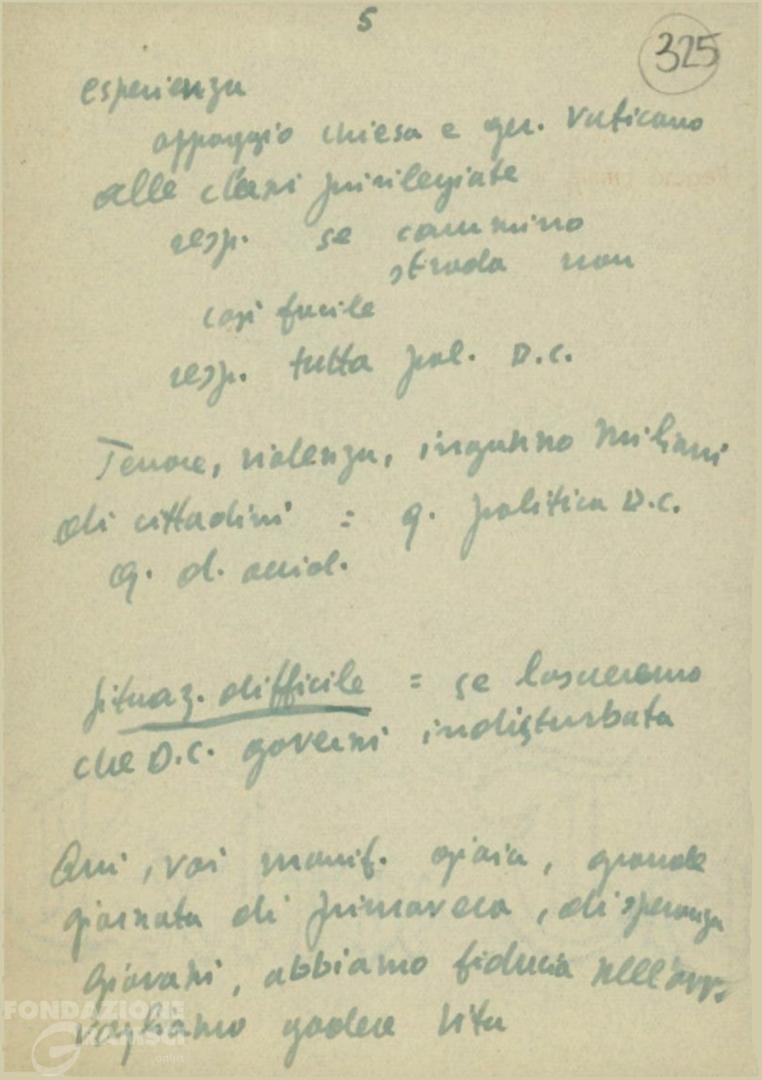 5
325
esperienza
appoggio chiesa e ger. Vaticano
alle classi privilegiate
resp. se cammino
strada non
così facile
resp. tutta pol. D.C.
Terrore, violenza, inganno milioni
di cittadini = q. politica D.C.
q. d.
situaz. difficile = se lasceremo
che D.C. governi indisturbata
Qui, voi manif. gioia, grande
giornata di primavera, di speranza
Giovani, abbiamo fiducia nell'avv.
vogliamo godere vita
FONDAZIONE
GRAMSCI
.online